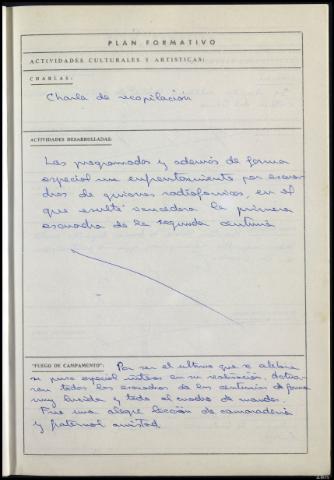 PLAN FORMATIVO
ACTIVIDADES CULTURALES Y ARTISTICAS:
CHARLAS:
Charla de recopilación
ACTIVIDADES DESARROLLADAS:
Las programadas y además de forma
especial un enfrentamiento por escua-
dras de guiones radiofonicos, en el
que resultó vencedora la primera
escuadra de la segunda centuria
"FUEGO DE CAMPAMENTO": Por ser el ultimo que se celebra
se puso especial interes en su realización. Actua-
ron todas las escuadras de las centurias de forma
muy lucida y todo el cuadro de mandos.
Fue una alegre lección de camaraderia
y fraternal amistad.